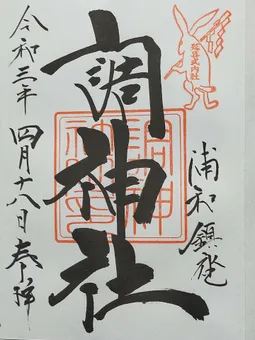 浦和鎮座
調神社
令和三年 四月十八日 奉拝
延喜式内社
調神社